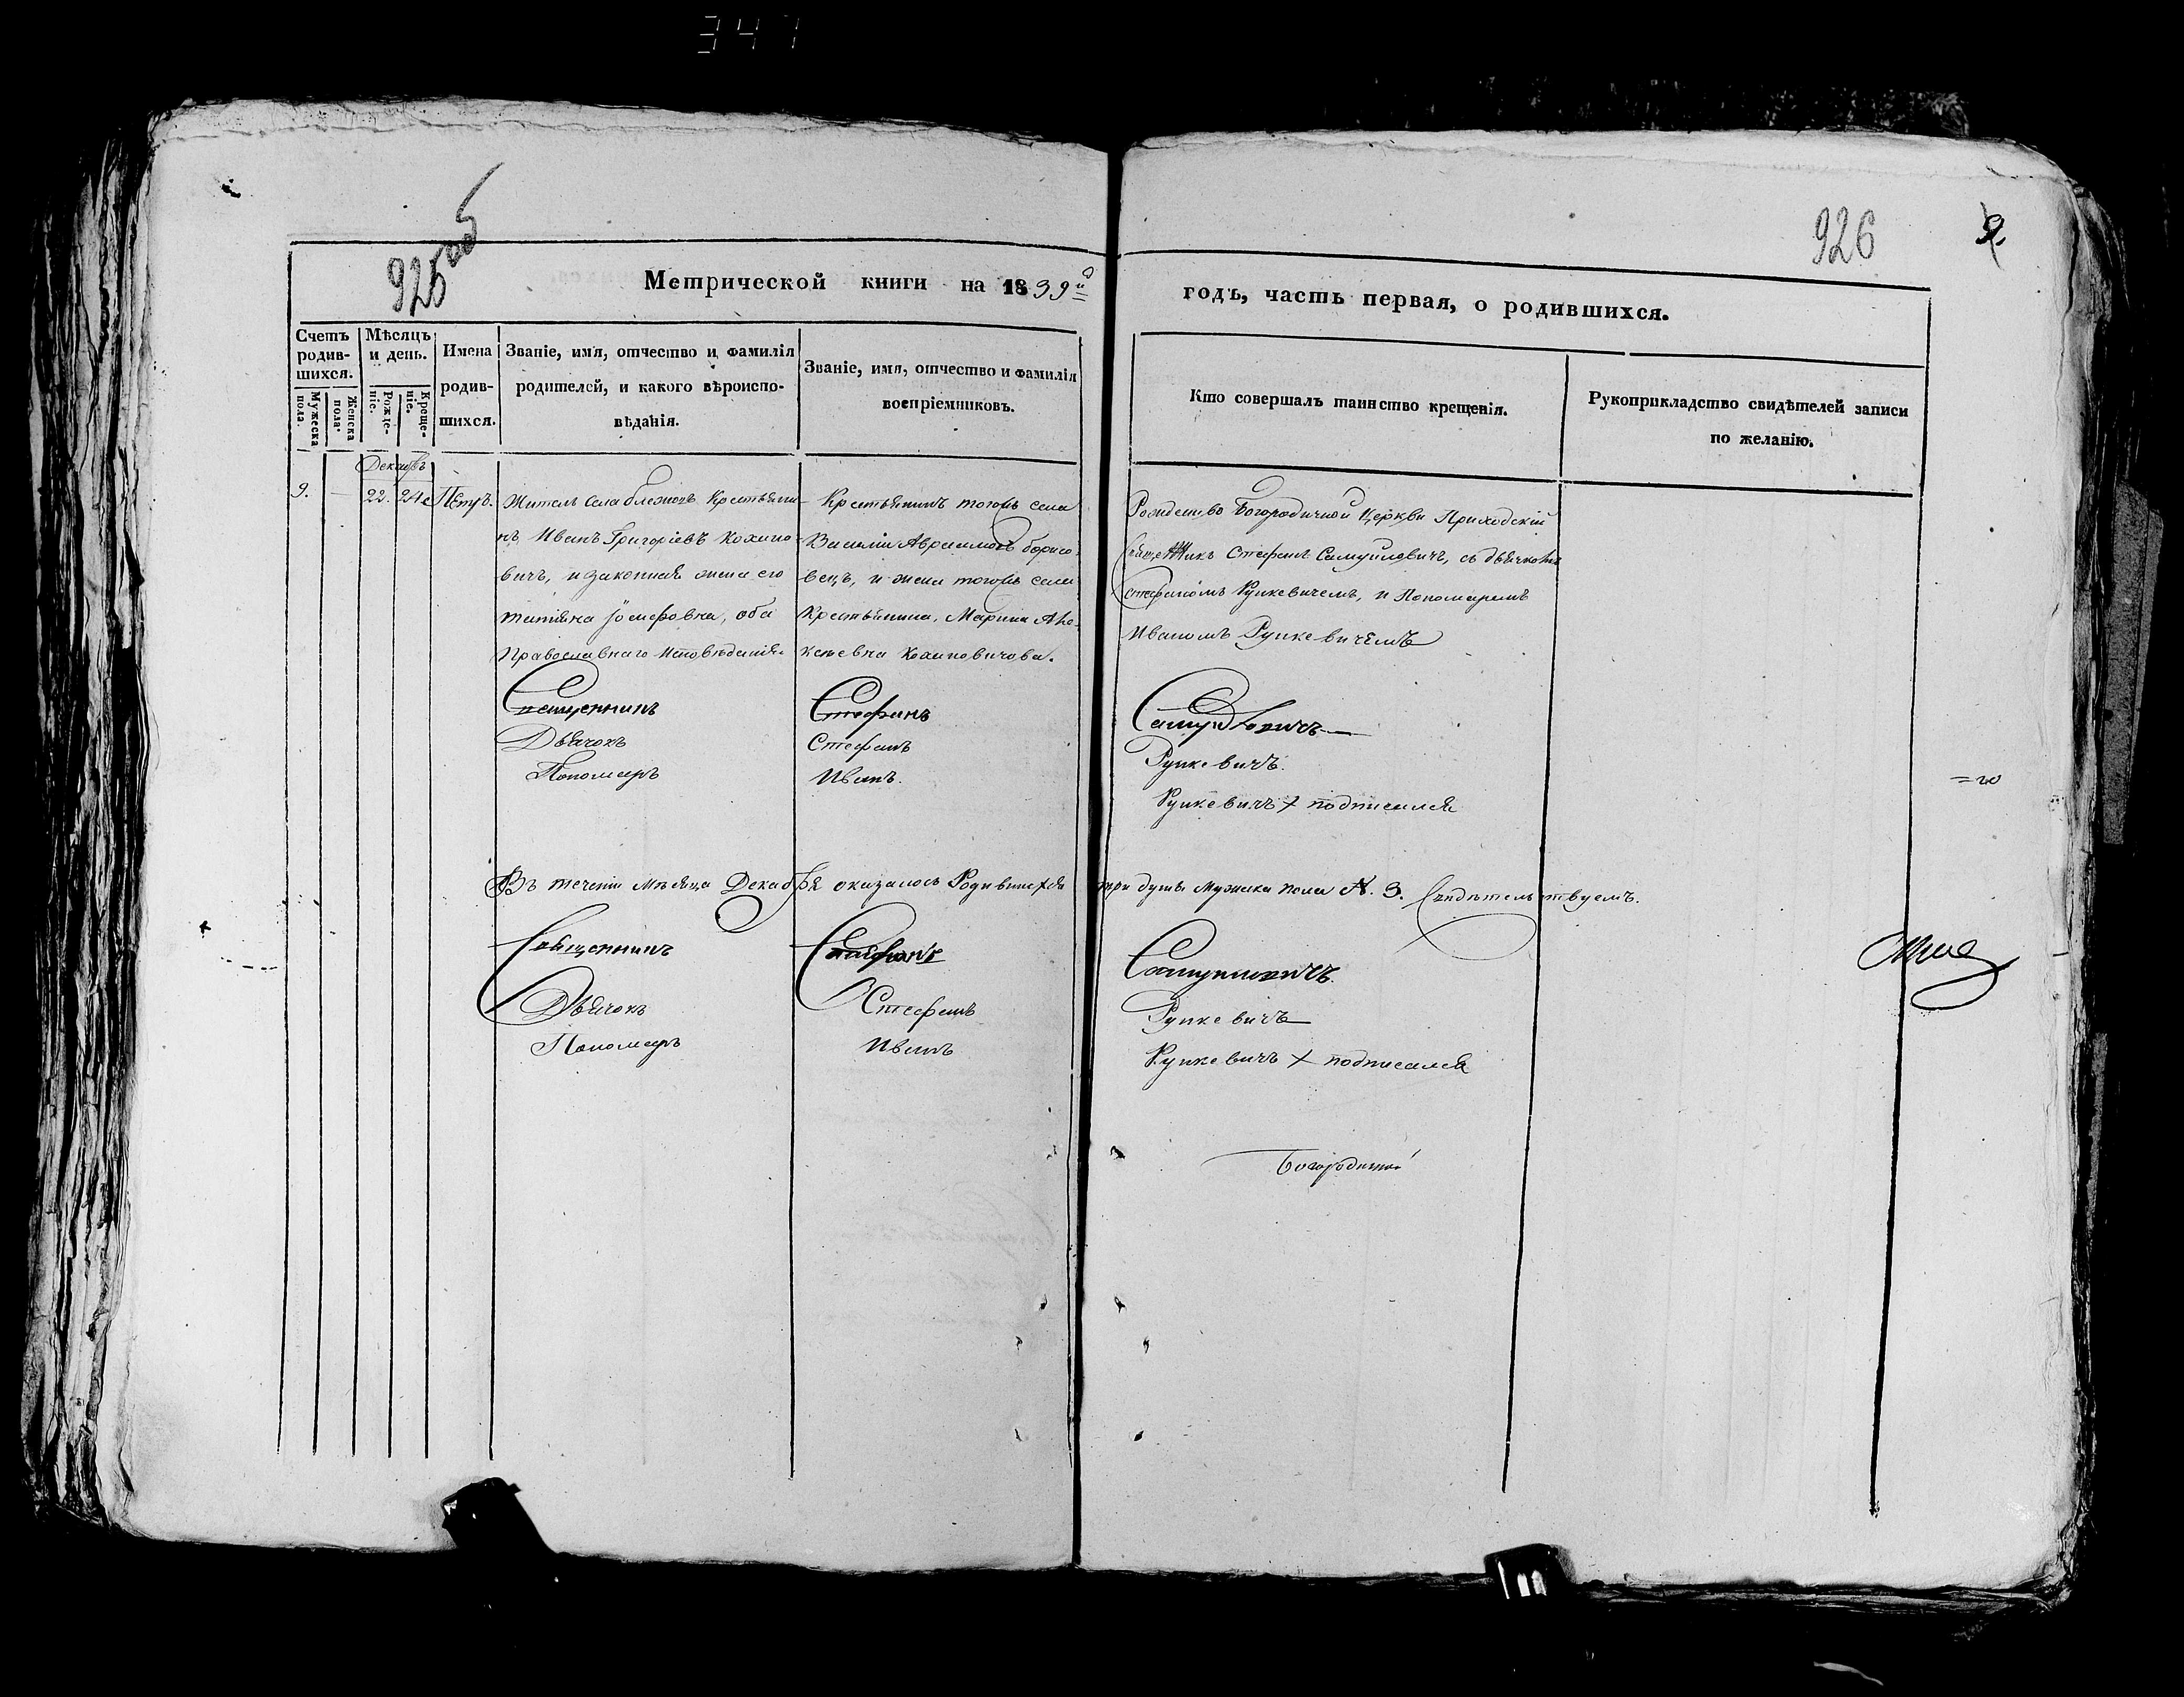 347
925 об
926
9.
Метрической книги на 1839й
годъ, часть первая, о родившихся.
Счетъ родив-шихся.
Мужеска пола.
Женска пола.
Мѣсяцъ и день.
Рожде-ніе.
Креще-ніе.
Имена
родив-
шихся.
Званіе, имя, отчество и фамилія
родителей, и какого вѣроиспо-
вѣданія.
Званіе, имя, отчество и фамилія
воспріемниковъ.
Кто совершалъ таинство крещенія.
Рукоприкладство свидѣтелей записи
по желанію.
Декабрь
9. — 22. 24 Петръ.
Жител Села Крестьяни-
нъ Иванъ Григоріевъ Кохно-
вичъ, и законная жена его
Татіяна Іосифовна, оба
Православнаго Исповѣданія
Крестьянинъ тогожъ села
Василій Авраамовъ Борисо-
вецъ, и жена тогожъ села
Крестьянина, Марина Але-
ксеевна
Рождество Богородичной Церкви Приходскій
Священникъ Стефанъ Самуйловичъ, съ дьячкомъ
Стефаномъ Рункевичемъ, и Пономаремъ
Иваномъ Рункевичемъ
Священникъ Стефанъ Самуйловичъ
Дьячокъ Стефанъ Рункевичъ.
Пономарь Иванъ. Рункевичъ + подписался
Въ теченіи Мѣсяца Декабря оказалось Родившихся три душъ Мужеска пола №. 3. Свидѣтельствуемъ.
Священникъ Стефанъ Самуйловичъ.
Дьячокъ Стефанъ Рункевичъ
Пономарь Иванъ Рункевичъ + подписался
Богородичной